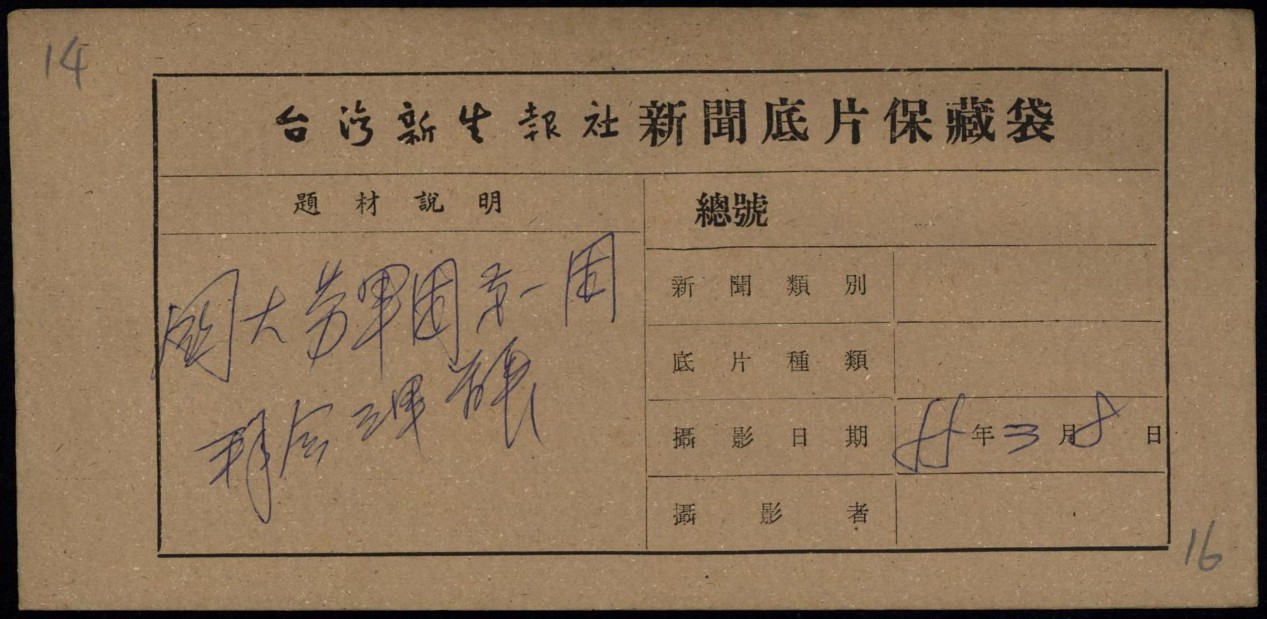 14
台湾新生報社新聞底片保藏袋
題材說明
國大勞軍團第一團
拜会
總號
新聞類別
底片種類
攝影日期 55年3月8日
攝影者
16